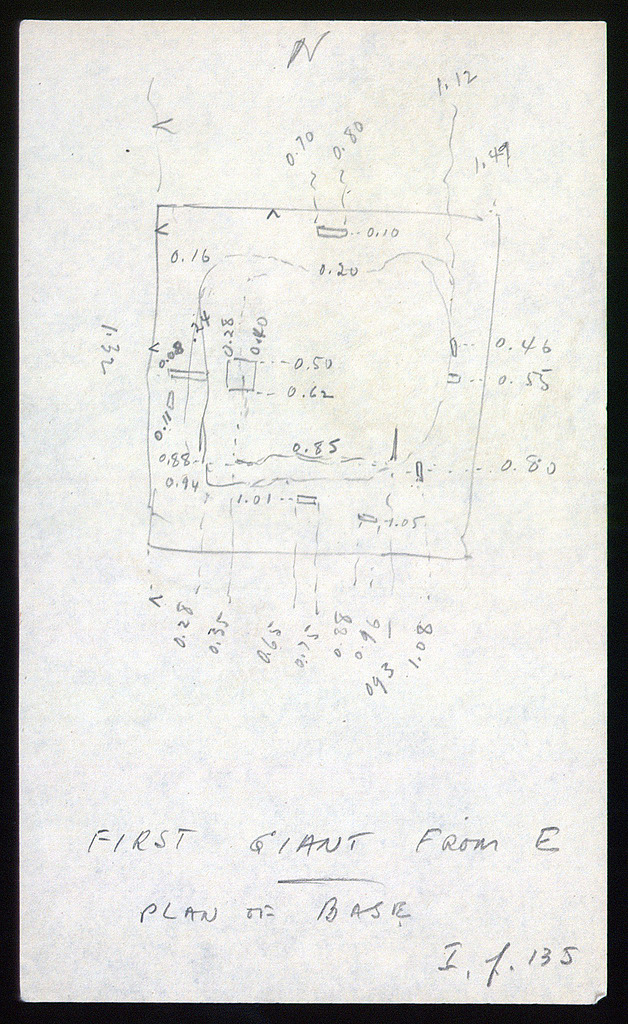 N
1.12
0.70 0.80
1.49
0.10
0.16
0.20
0.28
0.40
0.46
0.50
0.55
0.08
0.62
0.11
0.85
0.88
0.80
0.94
1.01
1.05
0.28
0.35
0.65
0.75
0.88
0.96
0.93
1.08
FIRST GIANT FROM E
PLAN OF BASE
I, f. 135